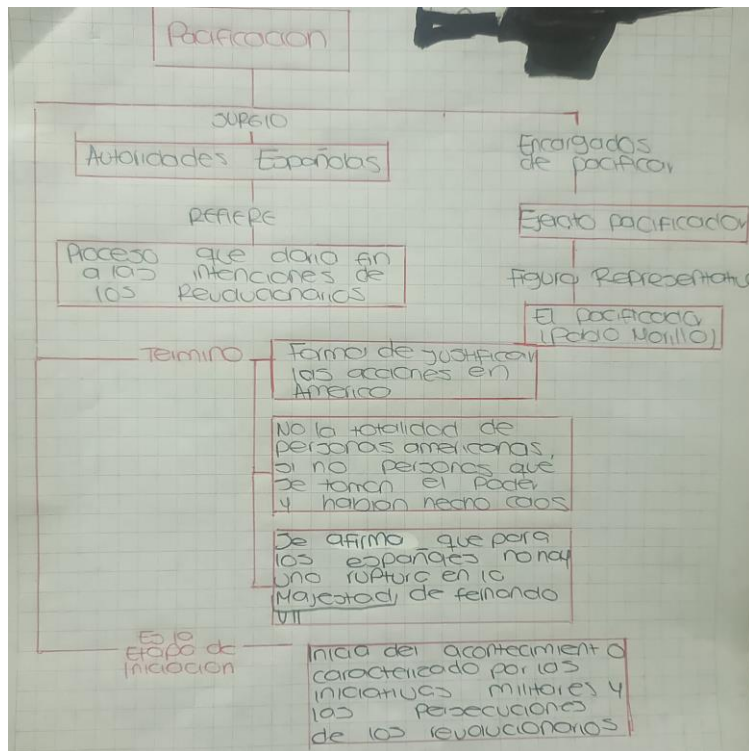 Pacificacion
SURGIO
Autoridades Españolas
REFIERE
Proceso que dario fin
a las intenciones de
los Revolucionarios
Encargados
de pacificar
Ejecito pacificador
Figura Representativ
El pacificador
(Pablo Morillo)
Termino
Forma de justificar
las acciones en
America
No la totalidad de
personas americanas,
si no personas que
se toman el Poder
y habian hecho caos
Se afirmo que para
los españoles no hay
una ruptura en la
Majestad, de fernando
VII
Es la
Etapa de
iniciacion
inicia del acontecimiento
caracterizado por las
iniciativas militares y
las persecuciones
de los revolucionarios